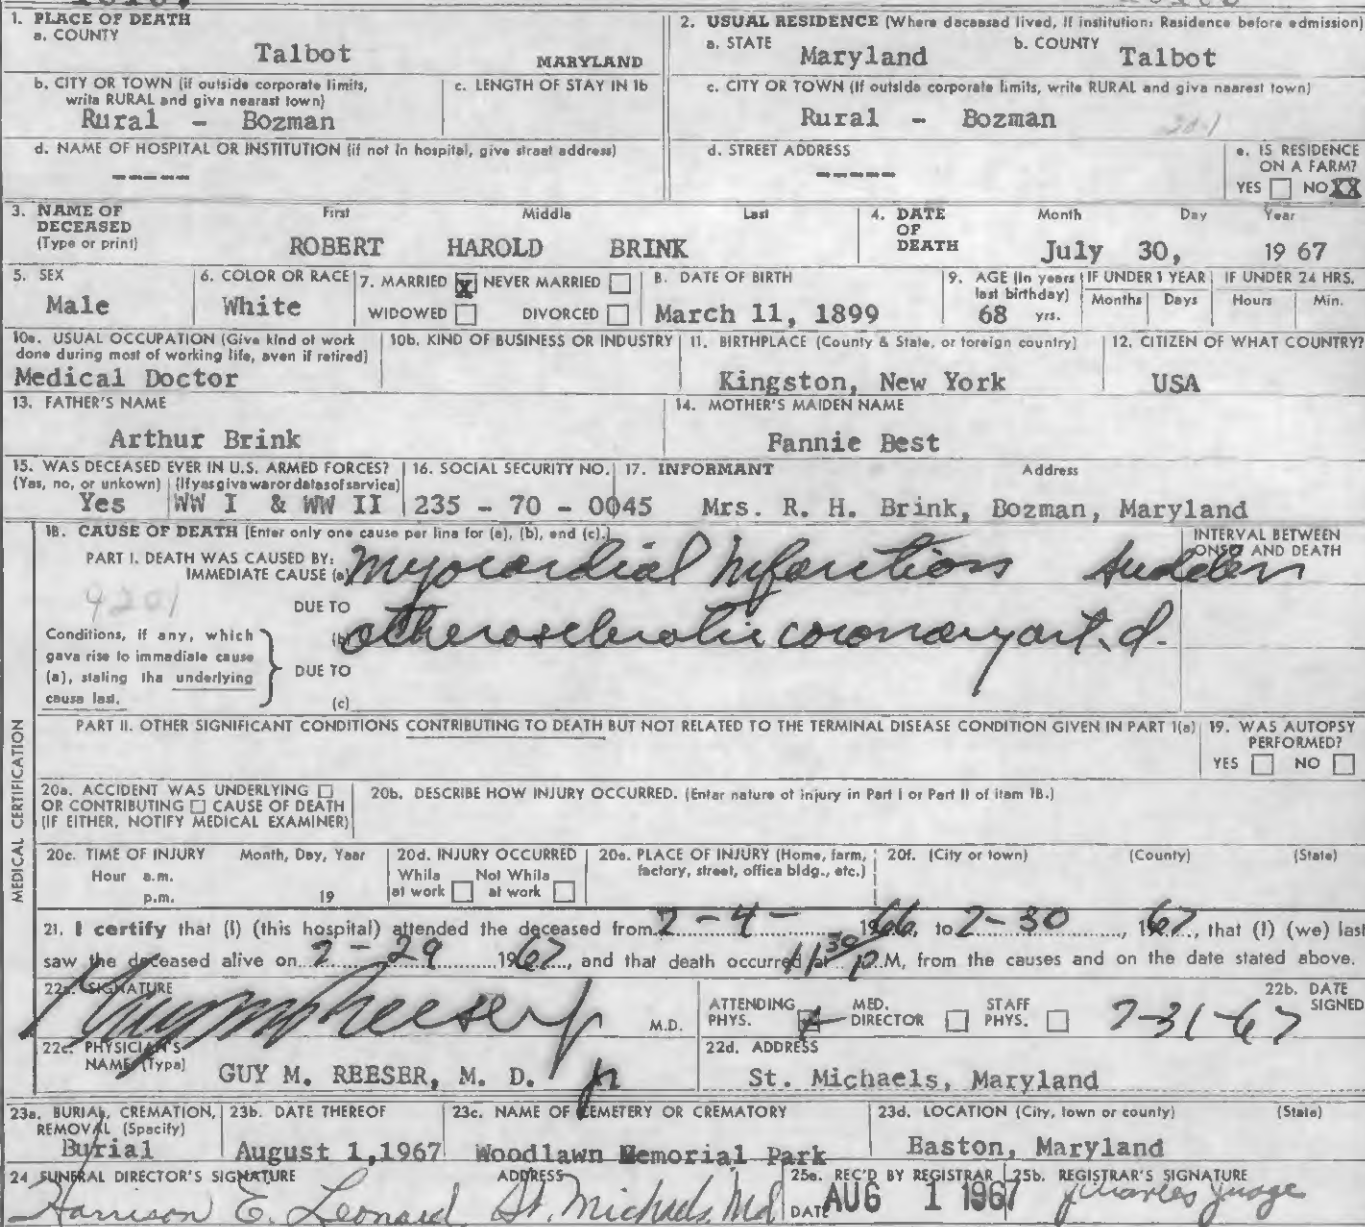 1. PLACE OF DEATH
a. COUNTY
Talbot MARYLAND
2. USUAL RESIDENCE (Where deceased lived, If institution: Residence before admission)
a. STATE Maryland b. COUNTY Talbot
b. CITY OR TOWN (if outside corporate limits, write RURAL and give nearest town)
Rural - Bozman
c. LENGTH OF STAY IN 1b
c. CITY OR TOWN (If outside corporate limits, write RURAL and give nearest town)
Rural - Bozman
d. NAME OF HOSPITAL OR INSTITUTION (if not in hospital, give street address)
-----
d. STREET ADDRESS
-----
e. IS RESIDENCE ON A FARM?
YES NO XX
3. NAME OF DECEASED (Type or print)
First Middle Last
ROBERT HAROLD BRINK
4. DATE OF DEATH
Month Day Year
July 30, 19 67
5. SEX
Male
6. COLOR OR RACE
White
7. MARRIED X NEVER MARRIED
WIDOWED DIVORCED
8. DATE OF BIRTH
March 11, 1899
9. AGE (In years last birthday)
68 yrs.
IF UNDER 1 YEAR
Months Days
IF UNDER 24 HRS.
Hours Min.
10a. USUAL OCCUPATION (Give kind of work done during most of working life, even if retired)
Medical Doctor
10b. KIND OF BUSINESS OR INDUSTRY
11. BIRTHPLACE (County & State, or foreign country)
Kingston, New York
12. CITIZEN OF WHAT COUNTRY?
USA
13. FATHER'S NAME
Arthur Brink
14. MOTHER'S MAIDEN NAME
Fannie Best
15. WAS DECEASED EVER IN U.S. ARMED FORCES?
(Yes, no, or unkown) (If yes give war or dates of service)
Yes WW I & WW II
16. SOCIAL SECURITY NO.
235 - 70 - 0045
17. INFORMANT Address
Mrs. R. H. Brink, Bozman, Maryland
MEDICAL CERTIFICATION
18. CAUSE OF DEATH [Enter only one cause per line for (a), (b), and (c).]
INTERVAL BETWEEN ONSET AND DEATH
PART I. DEATH WAS CAUSED BY:
IMMEDIATE CAUSE (a) Myocardial Infarctions sudden
4201
DUE TO
(b) atherosclerotic coronary art. d.
Conditions, if any, which gave rise to immediate cause (a), stating the underlying cause last.
DUE TO
(c)
PART II. OTHER SIGNIFICANT CONDITIONS CONTRIBUTING TO DEATH BUT NOT RELATED TO THE TERMINAL DISEASE CONDITION GIVEN IN PART 1(a)
19. WAS AUTOPSY PERFORMED?
YES NO
20a. ACCIDENT WAS UNDERLYING
OR CONTRIBUTING CAUSE OF DEATH
(IF EITHER, NOTIFY MEDICAL EXAMINER)
20b. DESCRIBE HOW INJURY OCCURRED. (Enter nature of injury in Part I or Part II of item 18.)
20c. TIME OF INJURY Month, Day, Year
Hour a.m.
p.m. 19
20d. INJURY OCCURRED
While at work Not While at work
20e. PLACE OF INJURY (Home, farm, factory, street, office bldg., etc.)
20f. (City or town) (County) (State)
21. I certify that (I) (this hospital) attended the deceased from 7-4- 1966, to 7-30, 1967, that (I) (we) last
saw the deceased alive on 7-29 1967, and that death occurred at 11 30 P.M, from the causes and on the date stated above.
22a. SIGNATURE
Guy M Reeser Jr M.D.
ATTENDING PHYS. MED. DIRECTOR STAFF PHYS.
22b. DATE SIGNED
7-31-67
22c. PHYSICIAN'S NAME (Type)
GUY M. REESER, M. D. Jr
22d. ADDRESS
St. Michaels, Maryland
23a. BURIAL, CREMATION, REMOVAL (Specify)
Burial
23b. DATE THEREOF
August 1,1967
23c. NAME OF CEMETERY OR CREMATORY
Woodlawn Memorial Park
23d. LOCATION (City, town or county) (State)
Easton, Maryland
24 FUNERAL DIRECTOR'S SIGNATURE ADDRESS
Harrison E. Leonard St. Michaels, Md
25a. REC'D BY REGISTRAR
DATE AUG 1 1967
25b. REGISTRAR'S SIGNATURE
Charles Judge